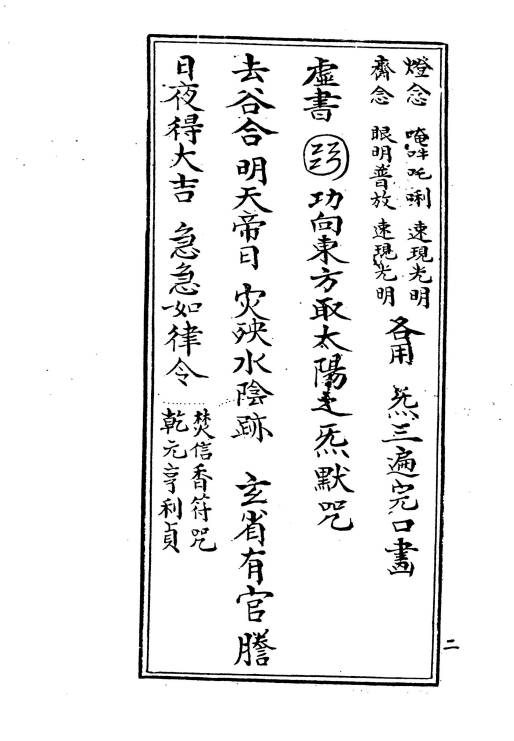 燈念 唵吽吒唎 速現光明
齊念 眼明普放 速現光明
各用 炁三遍完口畫
虛書 功向東方取太陽之炁默咒
去谷合明天帝日 災殃水陰跡 玄省有官謄
日夜得大吉 急急如律令
焚信香符咒
乾元亨利貞
二